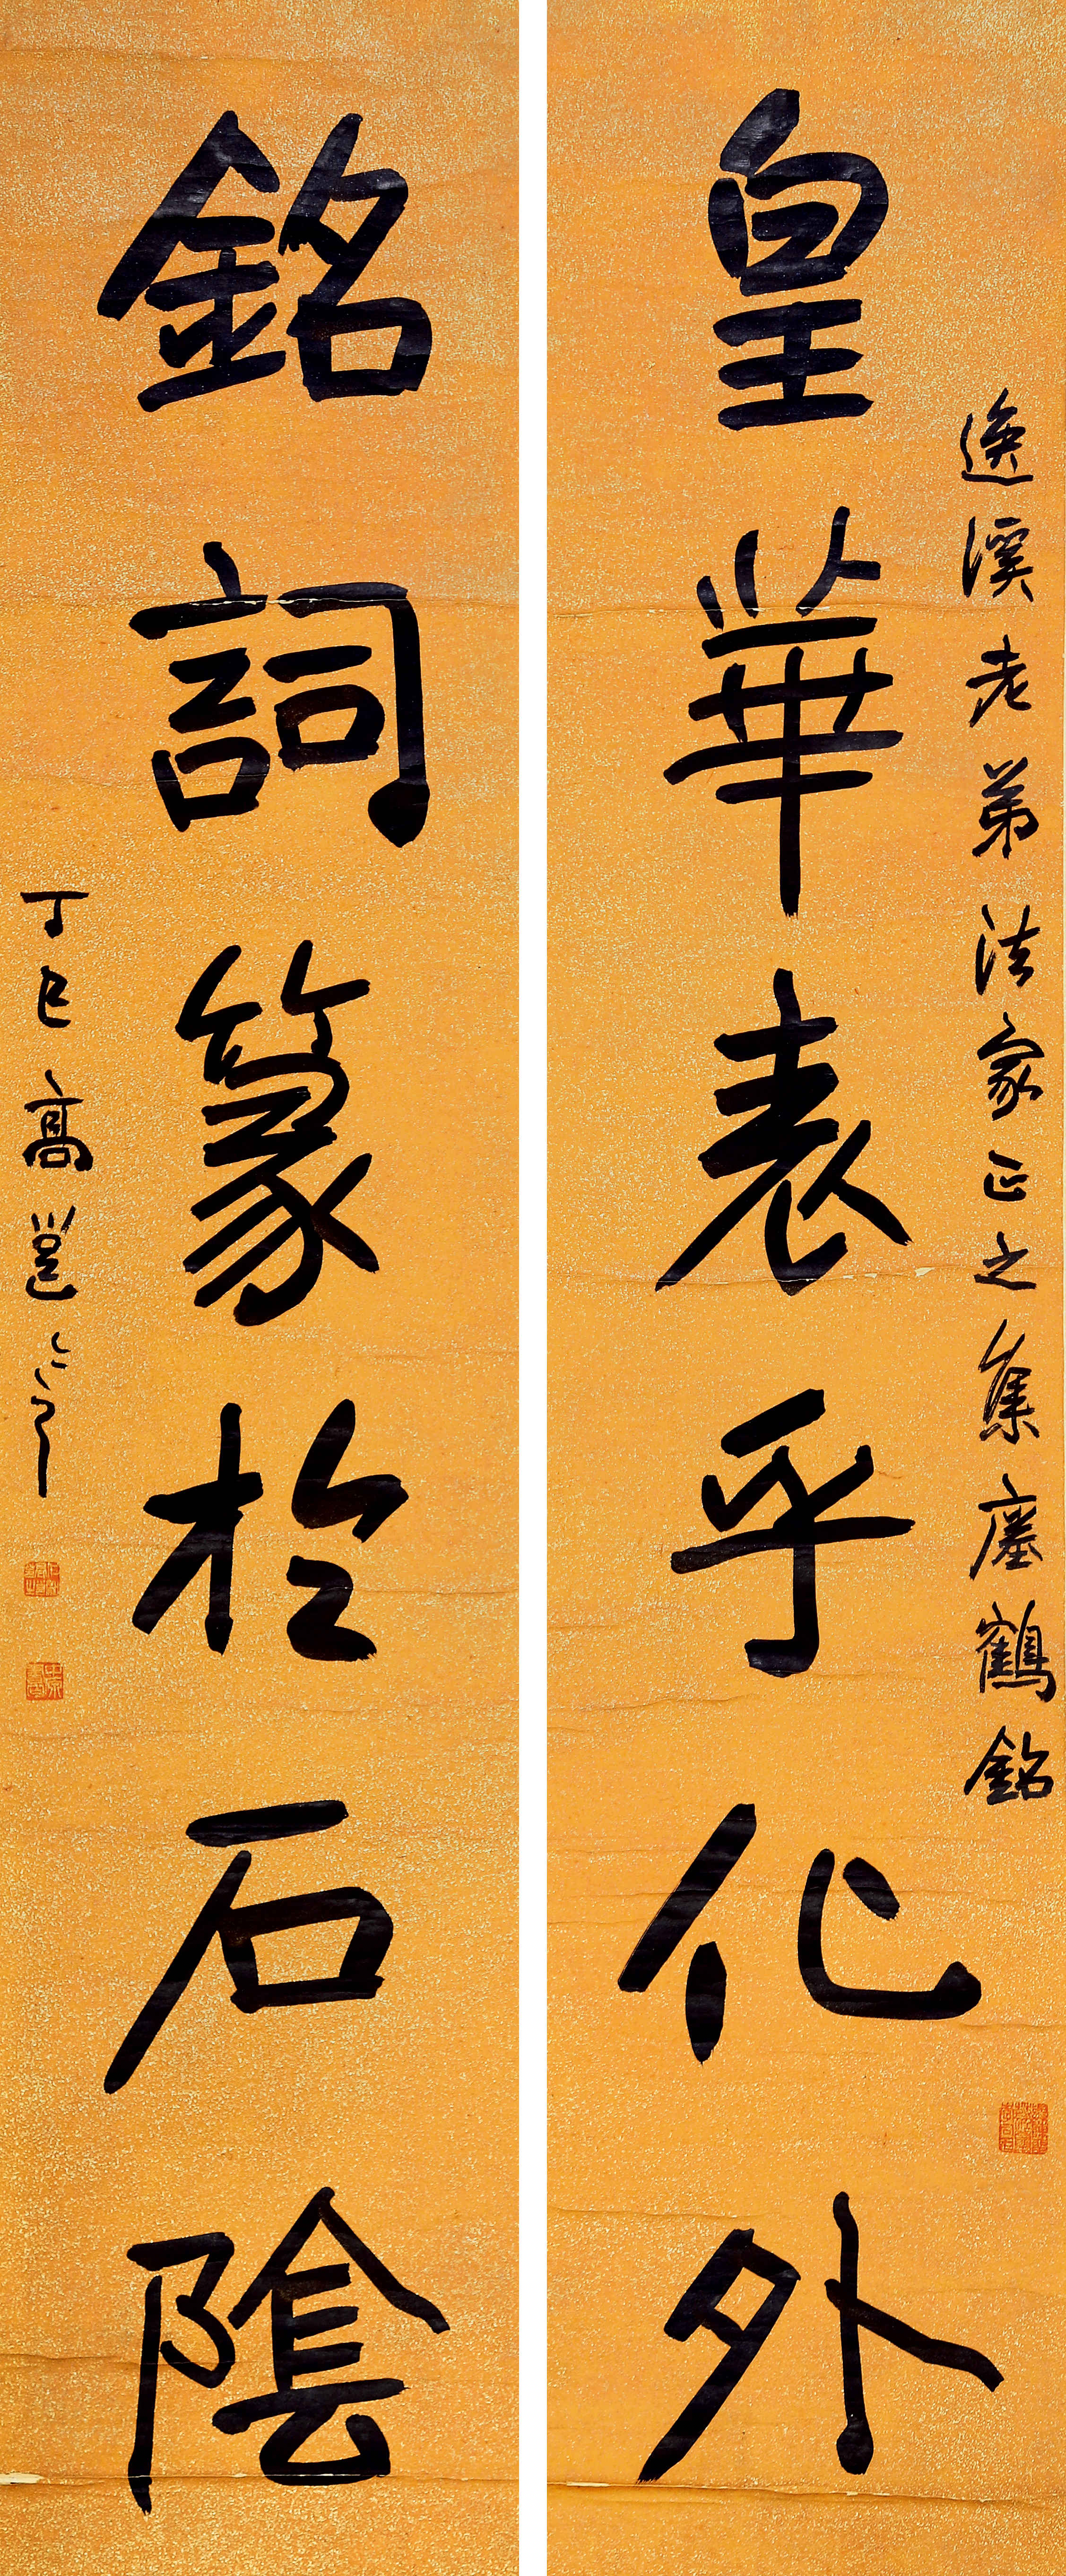 逸溪老弟法家正之集瘞鶴銘
皇華表乎化外
銘詞篆於石陰
丁巳高邕